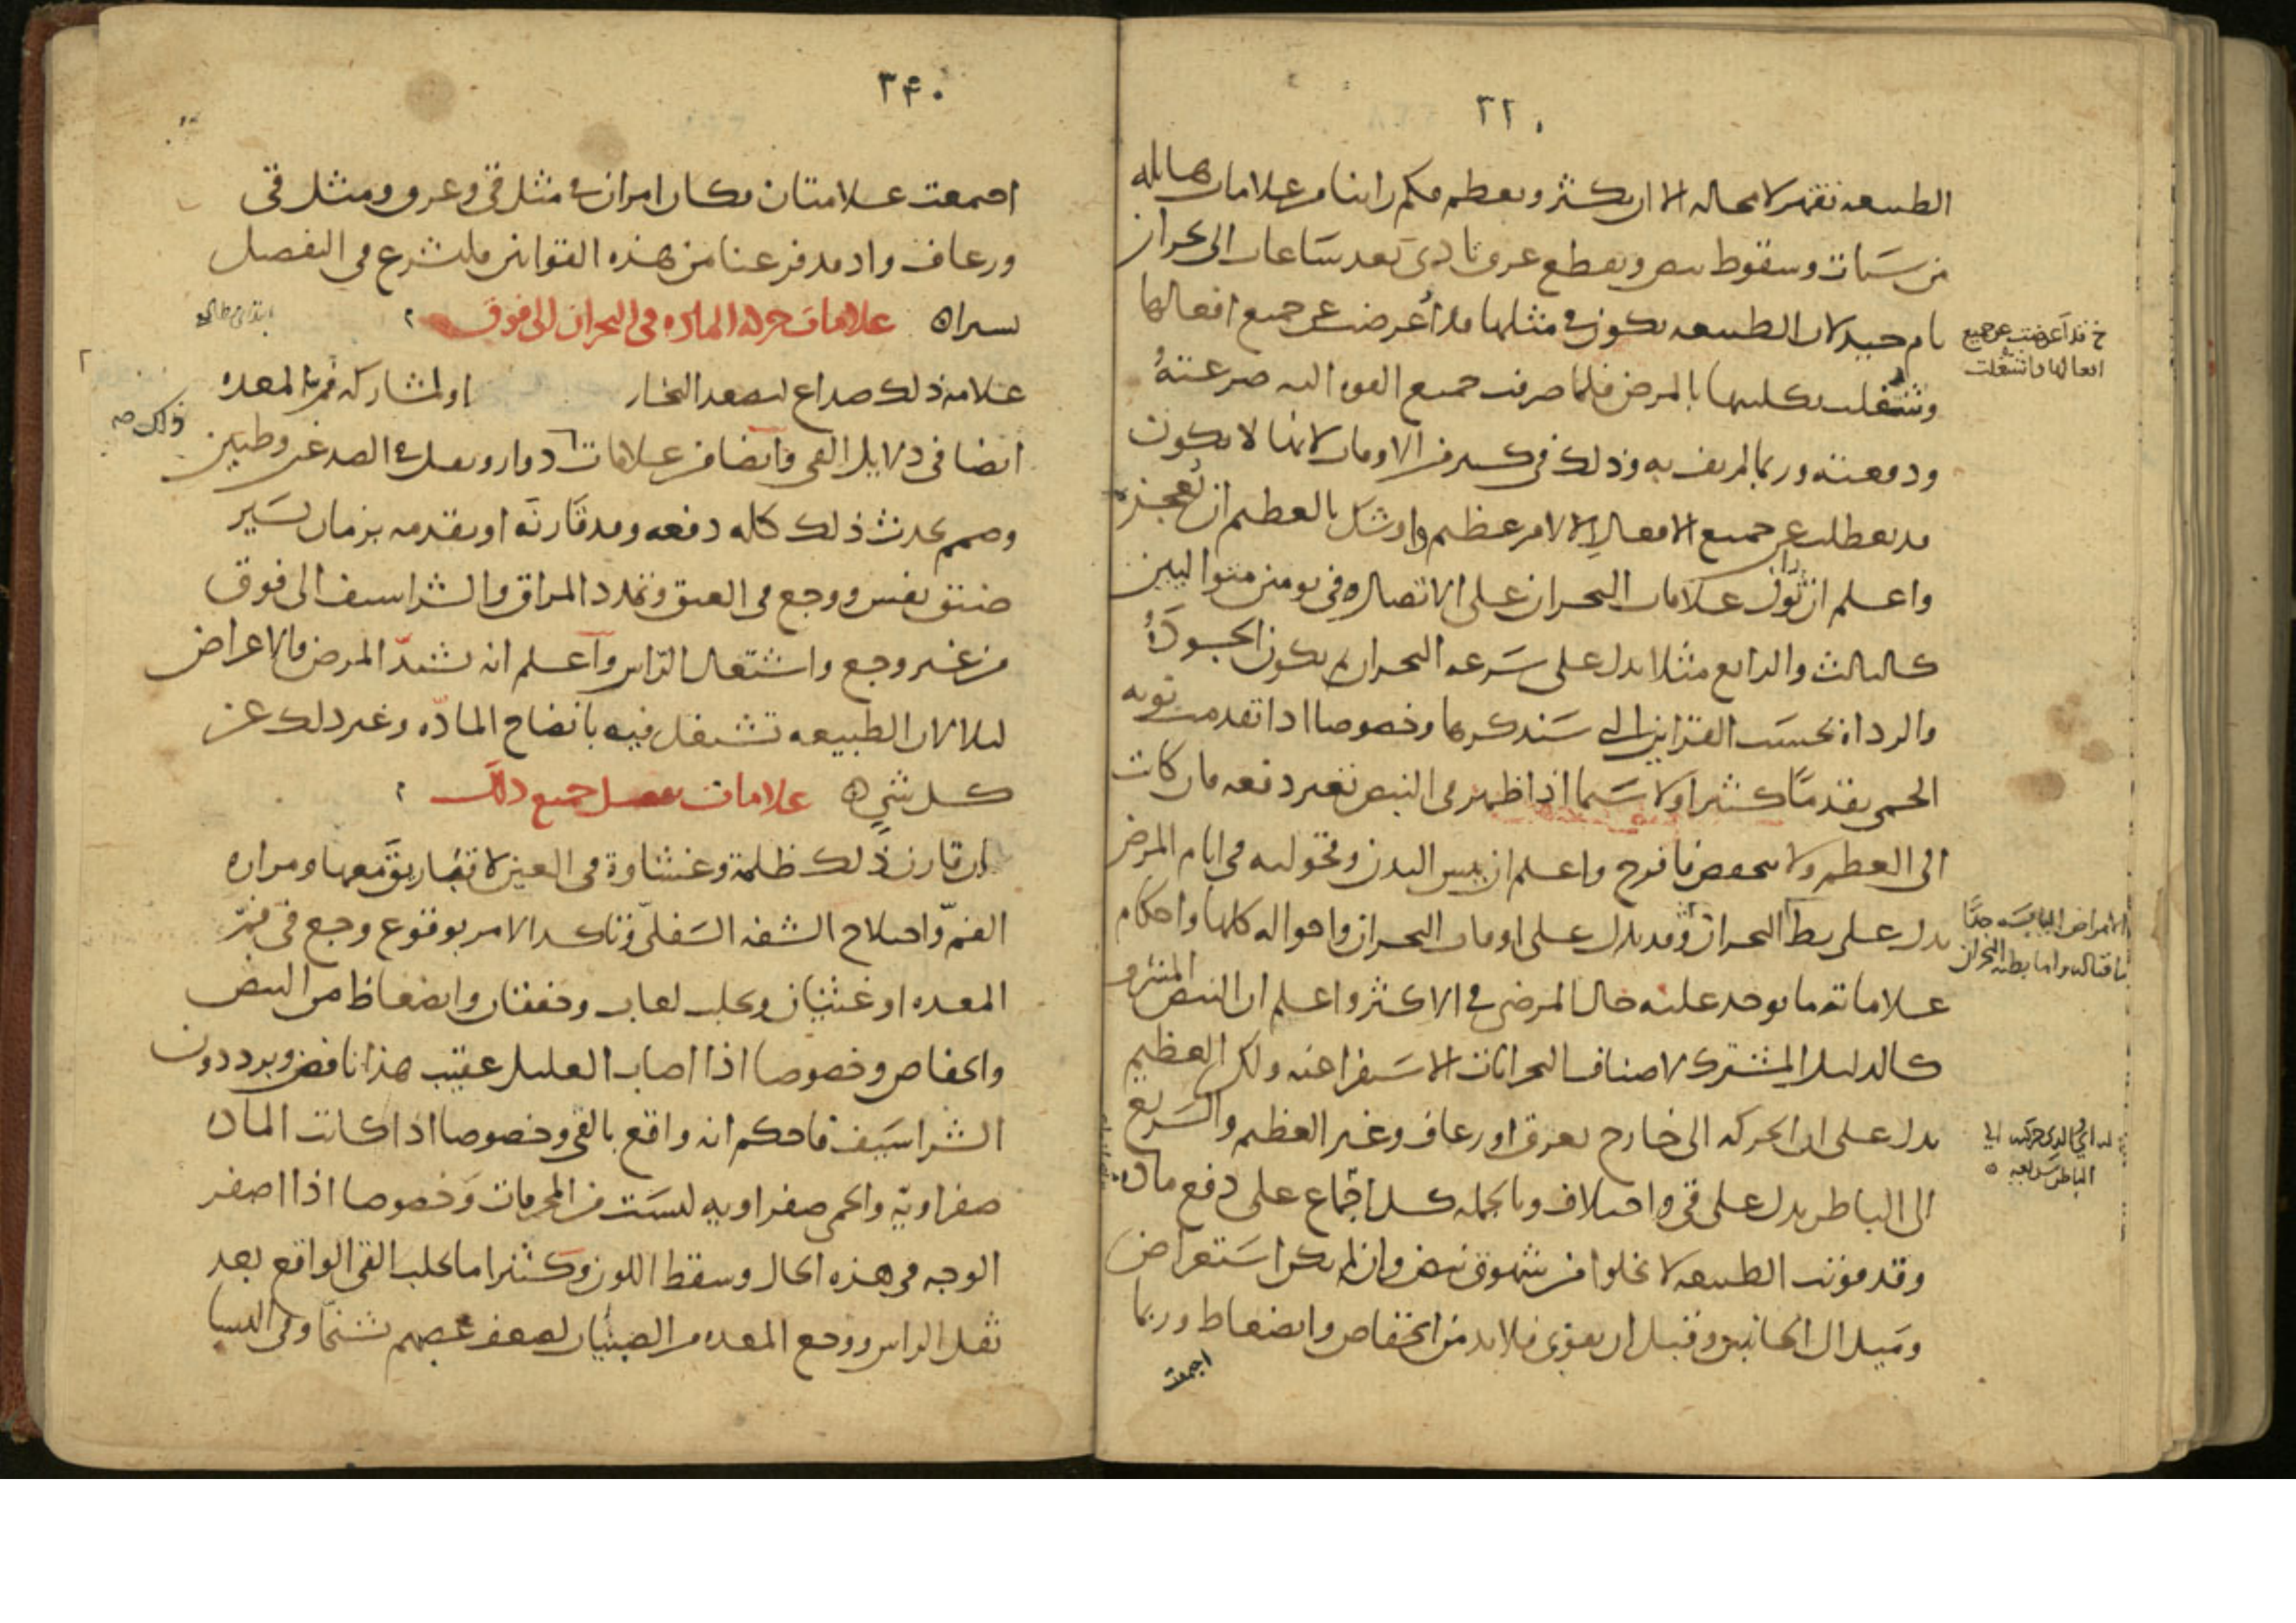 ٢٢٠
الطبيعه تقهر لا محاله الا ان يكثر ويعظم فكم راينا من علامات هايله
من سبات وسقوط نبض وتقطع عرق تادى بعد ساعات الى بحران
تام جيد لان الطبيعه يكون فى مثلها قد اعرضت عن جميع افعالها
خ قد اعرضت عن جميع
افعالها واشتغلت
وشغلت بكليتها بالمرض فلما صرفت جميع القوه اليه صرعته
ودفعته وربما لم يف به وذلك فى كثير من الاوقات لانها لا يكون
قد تعطلت عن جميع الافعال الا لامر عظيم واوشك بالعظيم ان يعجزه
واعلم ان توفر علامات البحران على الاتصال فى يومين متواليين
كالثالث والرابع مثلا يدل على سرعه البحران ثم يكون الجودة
والرداة بحسب القراين التى سنذكرها وخصوصا اذا تقدمت نوبه
الحمى تقدما كثيرا ولا سيما اذا ظهر فى النبض تغير دفعه فان كانت
الى العظم ولا ينخفض فافرح واعلم ان يبس البدن ونحوله فى ايام المرض
يدل على بطء البحران وقد يدل على اوقات البحران واحواله كلها واحكام
الامراض اليابسه جدا
فاقتاله واما بطيه البحران
علاماته ما يوجد عليه حال المرض فى الاكثر واعلم ان النبض المشرف
كالدليل المشترك لاصناف البحرانات الاستفراغيه ولكن العظيم
يدل على ان الحركه الى خارج بعرق او رعاف وغير العظيم والسريع
الباطن سريعه
الى الباطن يدل على قى واختلاف وبالجمله كل اجماع على دفع ماده
وقد قويت الطبيعه لا يخلوا من شهوق نبض وان لم يكن استعراض
وميل الى الجانبين وقبل ان يقوى فلا بد من انخفاض وانضغاط وربما
اجتمعت
٣۴٠
اجتمعت علامتان فكان امران فى مثل قى وعرق ومثل قى
ورعاف واذ قد فرغنا من هذه القوانين فلنشرع فى التفصيل
يسيرا ه علامات حركه الماده فى البحران الى فوق
علامه ذلك صداع لتصعد البخار او لمشاركه فم المعده
ذلك صح
ايضا فى دلايل القى وايضا من علامات دوار وثقل فى الصدغين وطنين
وصمم يحدث ذلك كله دفعه وقد قارنه او يقدمه بزمان يسير
ضيق نفس ووجع فى العنق وتمدد المراق والشراسيف الى فوق
من غير وجع واشتعال الراس واعلم انه يشتد المرض والاعراض
ليلا لان الطبيعه تشتغل فيه بانضاج الماده وغير ذلك عن
كل شى ه علامات تفصيل جميع ذلك
ان قارن ذلك ظلمة وغشاوة فى العين لا تباريق معها ومراره
الفم واختلاج الشفه السفلى وتاكد الامر بوقوع وجع فى فم
المعده او غثيان وتحلب لعاب وخفقان وانضغاط من النبض
وانخفاض وخصوصا اذا اصاب العليل عقيب هذا نافض وبرد دون
الشراسيف فاحكم انه واقع بالقى وخصوصا اذا كانت الماده
صفراوية والحمى صفراويه ليست من المحرقات وخصوصا اذا اصفر
الوجه فى هذه الحال وسقط اللون وكثيرا ما يجلب القى الواقع بعد
ثقل الراس ووجع المعده من الصبيان لضعف عصبهم تشنجا وفى النسا